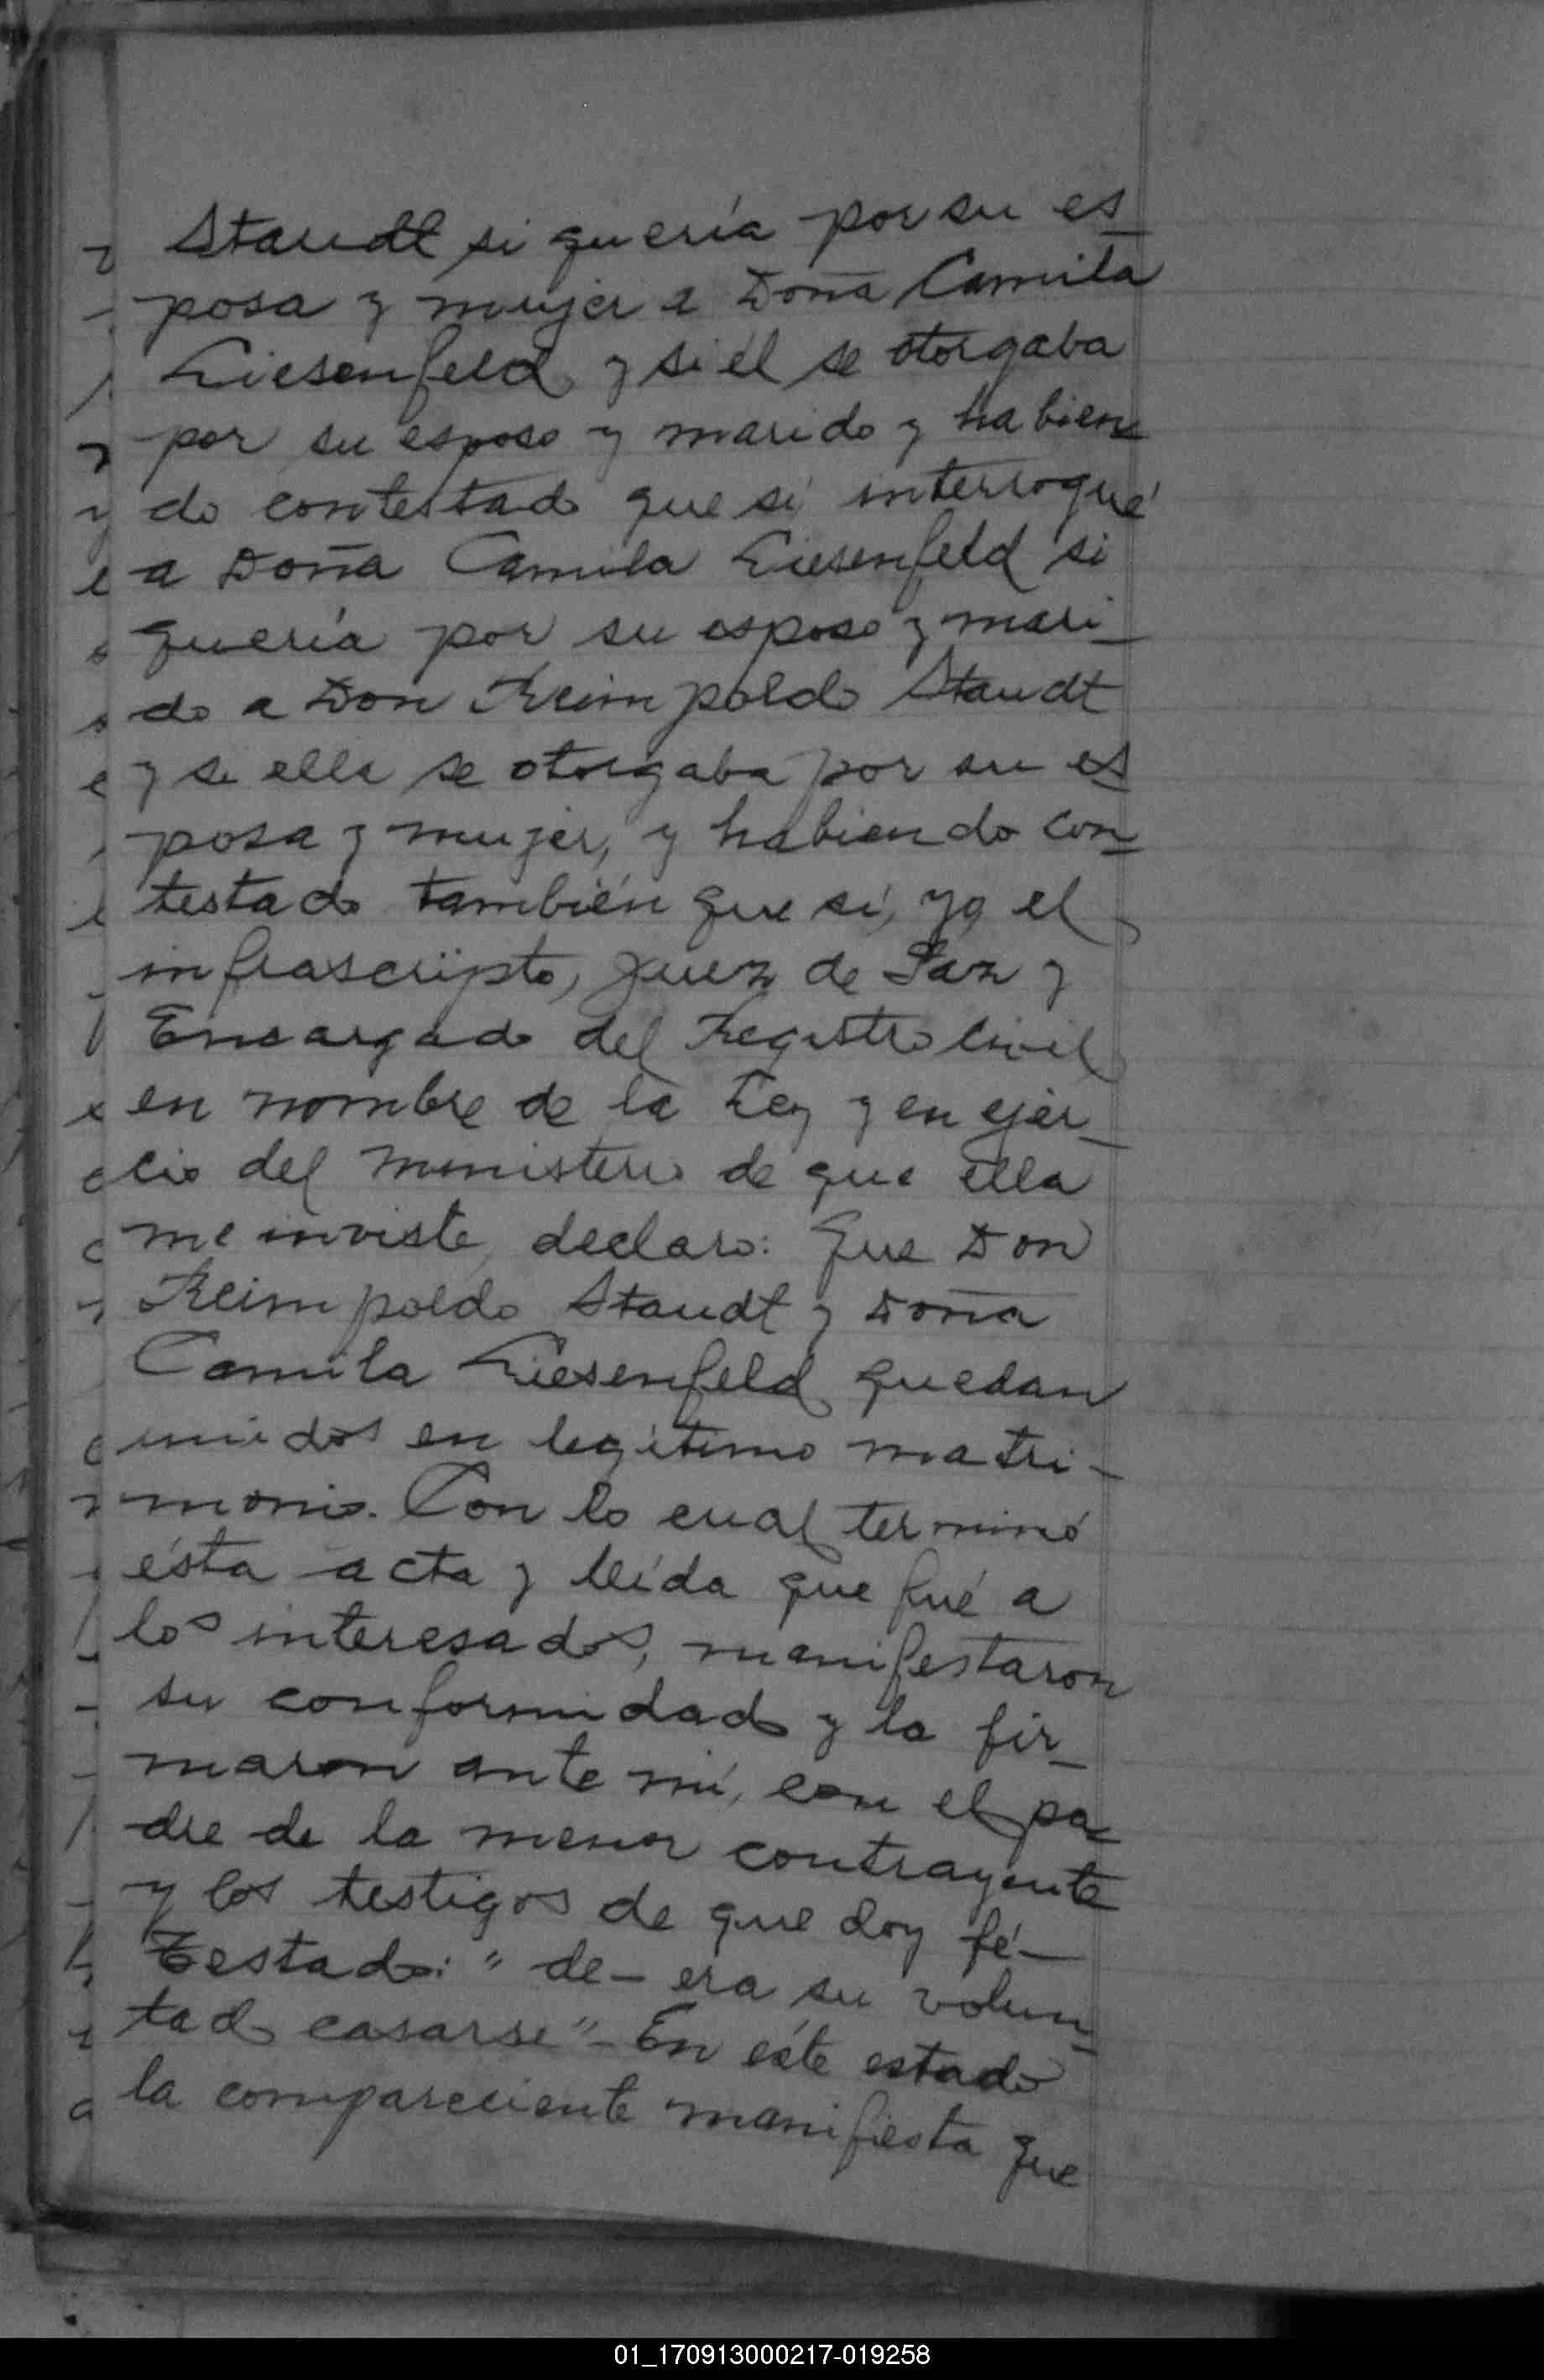 Staudt si quería por su es_
posa y mujer a Doña Camila
Liesenfeld y si él se otorgaba
por su esposo y marido y habien
do contestado que sí, interrogué
a Doña Camila Liesenfeld si
quería por su esposo y mari_
do a Don Reimpoldo Staudt
y si ella se otorgaba por su es
posa y mujer, y habiendo con_
testado también que sí, yo el
infrascripto, Juez de Paz y
Encargado del Registro Civil
en nombre de la Ley y en ejer_
cio del ministerio de que ella
me inviste, declaro: Que Don
Reimpoldo Staudt y Doña
Camila Liesenfeld quedan
unidos en legítimo matri-
monio. Con lo cual terminó
ésta acta y leída que fué a
los interesados, manifestaron
su conformidad y la fir_
maron ante mí, con el pa_
dre de la menor contrayente
y los testigos de que doy fé—
Testado: "de- era su volun_
tad casarse"- En éste estado
la compareciente manifiesta que
01_170913000217-019258